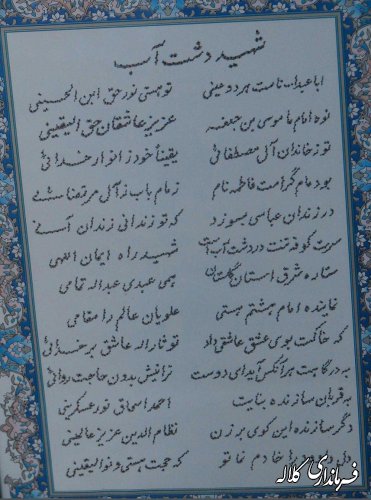 شهید دشت آب
اباعبدالله نامست هر دو عینی تو هستی نور حق ابن الحسینی
نوه امام ما موسی بن جعفر عزیز عاشقان حق الیقینی
تو ز خاندان آل مصطفائی یقیناً خود ز انوار خدائی
بود مام گرامت فاطمه نام ز مام باب ز آل مرتضائی
در زندان عباسی بسوزد که تو زندانی زندان
سرت کوفه تنت در دشت آب است شهید راه ایمان الهی
ستاره شرق استان گلستان همی عبدی عبداله تمامی
نماینده امام هشتم هستی علویان عالم را مقامی
که خاکت بوی عشق عاشقی داد تو ثاراله عاشق بر خدائی
به درگاهت هر آنکس آید ای دوست نرانیش بدون حاجت روائی
به قربان سازنده بنایت احمد اسحاق نور عسکرینی
دگر سازنده این کوی برزن نظام الدین عزیز عالمینی
خادم نما تو که حجت هستی و نور الیقینی
فرمانداری کلاله